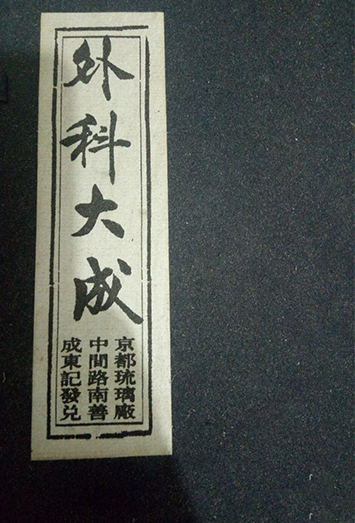 外科大成
京都琉璃厰
中間路南善
成東記發兌